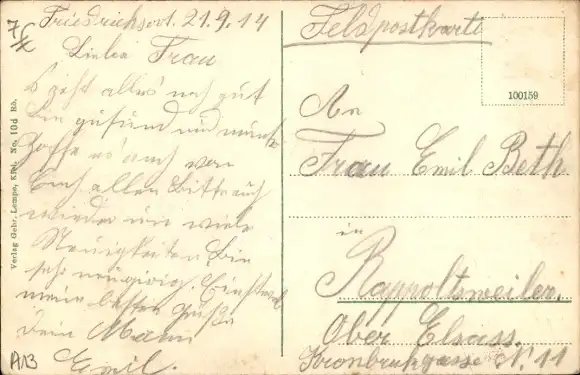 7/X
Friedrichsort. 21.9.14
Liebe Frau
es geht alles noch gut
bin gesund und munter
hoffe es auch von
Euch allen Bitte auch
wieder um viele
Neuigkeiten bin
sehr neugierig. Einstweilen
mein besten Grüße
Dein Mann
Emil.
A13
Verlag Gebr. Lempe, Kiel. No. 10d
Feldpostkarte
100159
An
Frau Emil Beth
in
Rappoltsweiler,
Ober Elsass.
Kronbruhgasse No 11